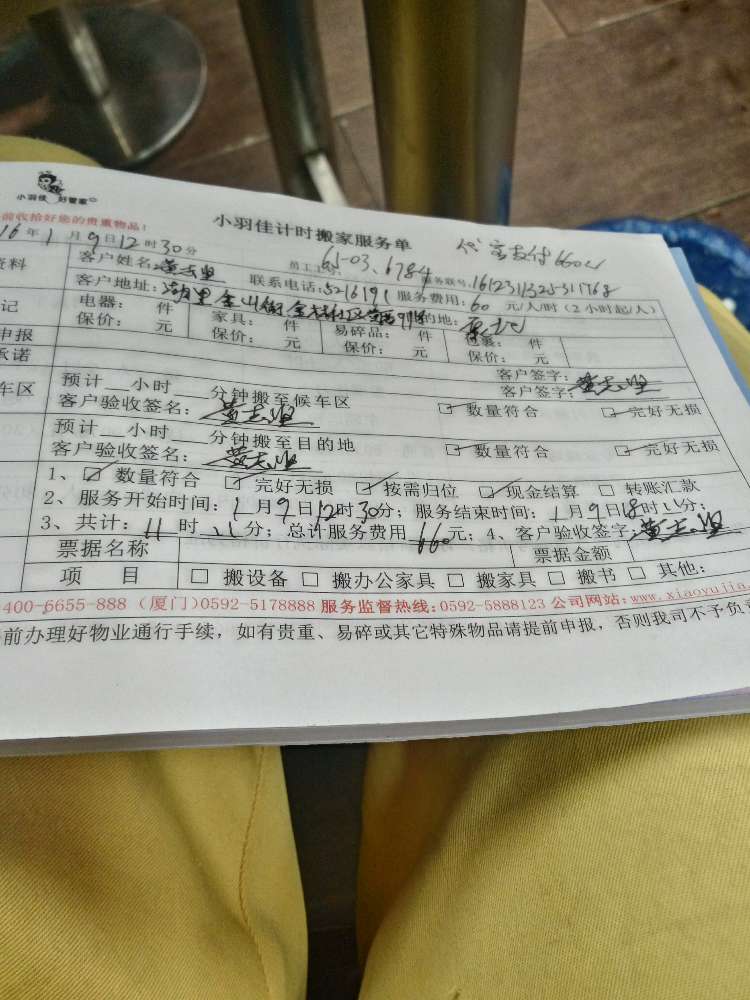 小羽佳 好管家
前收拾好您的贵重物品！
小羽佳计时搬家服务单
支付660
16年1月9日12时30分
员工工 65-03、6784
服务联号：161231132531768
资料
客户姓名：黄志坚
联系电话：5216191 服务费用：60 元/人/时（2小时起/人）
客户地址：湖里金山街 社区 的地：
记
电器： 件 家具： 件 易碎品： 件 件
保价： 元 保价： 元 保价： 元 保价： 元
申报
客户签字：
承诺
客户签字：黄志坚
车区
预计__小时___分钟搬至候车区
客户验收签名：黄志坚 ☑ 数量符合 ☑ 完好无损
预计__小时___分钟搬至目的地
客户验收签名：黄志坚 ☑ 数量符合 ☑ 完好无损
1、☑ 数量符合 ☑ 完好无损 ☑ 按需归位 ☑ 现金结算 □ 转账汇款
2、服务开始时间：1月9日12时30分；服务结束时间：1月9日18时 分；
3、共计：11时 分；总计服务费用660元；4、客户验收签字：黄志坚
票据名称 票据金额
项 目 □ 搬设备 □ 搬办公家具 □ 搬家具 □ 搬书 □ 其他：
400-6655-888（厦门）0592-5178888 服务监督热线：0592-5888123 公司网站：www.xiaoyujia.
前办理好物业通行手续，如有贵重、易碎或其它特殊物品请提前申报，否则我司不予负责